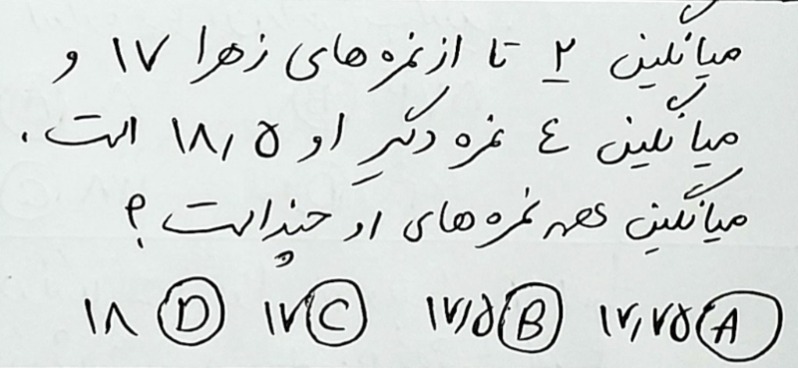 میانگین ۲ تا از نمره های زهرا ۱۷ و
میانگین ٤ نمره دیگر او ۱۸٫۵ است.
میانگین همه نمره های او چند است ؟
۱۷٫۷۵ (A) ۱۷٫۵ (B) ۱۷ (C) ۱۸ (D)